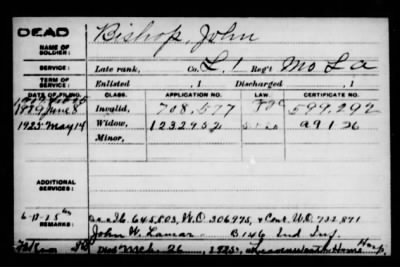 DEAD
NAME OF SOLDIER: Bishop, John
SERVICE: Late rank, Co. L. 1 Reg't Mo L a
TERM OF SERVICE: Enlisted , 1 Discharged , 1
DATE OF FILING. CLASS. APPLICATION NO. LAW. CERTIFICATE NO.
June 8 Invalid, 708.577 599.292
1925 May 14 Widow, 1232952 a9126
Minor,
ADDITIONAL SERVICES:
REMARKS: 645,803, W.O. 306975, & Cont. W.O. 722,871
John W. Lamar B 146 Ind Inf.
Died Mch. 26, 1925, Leavenworth Home Hosp,